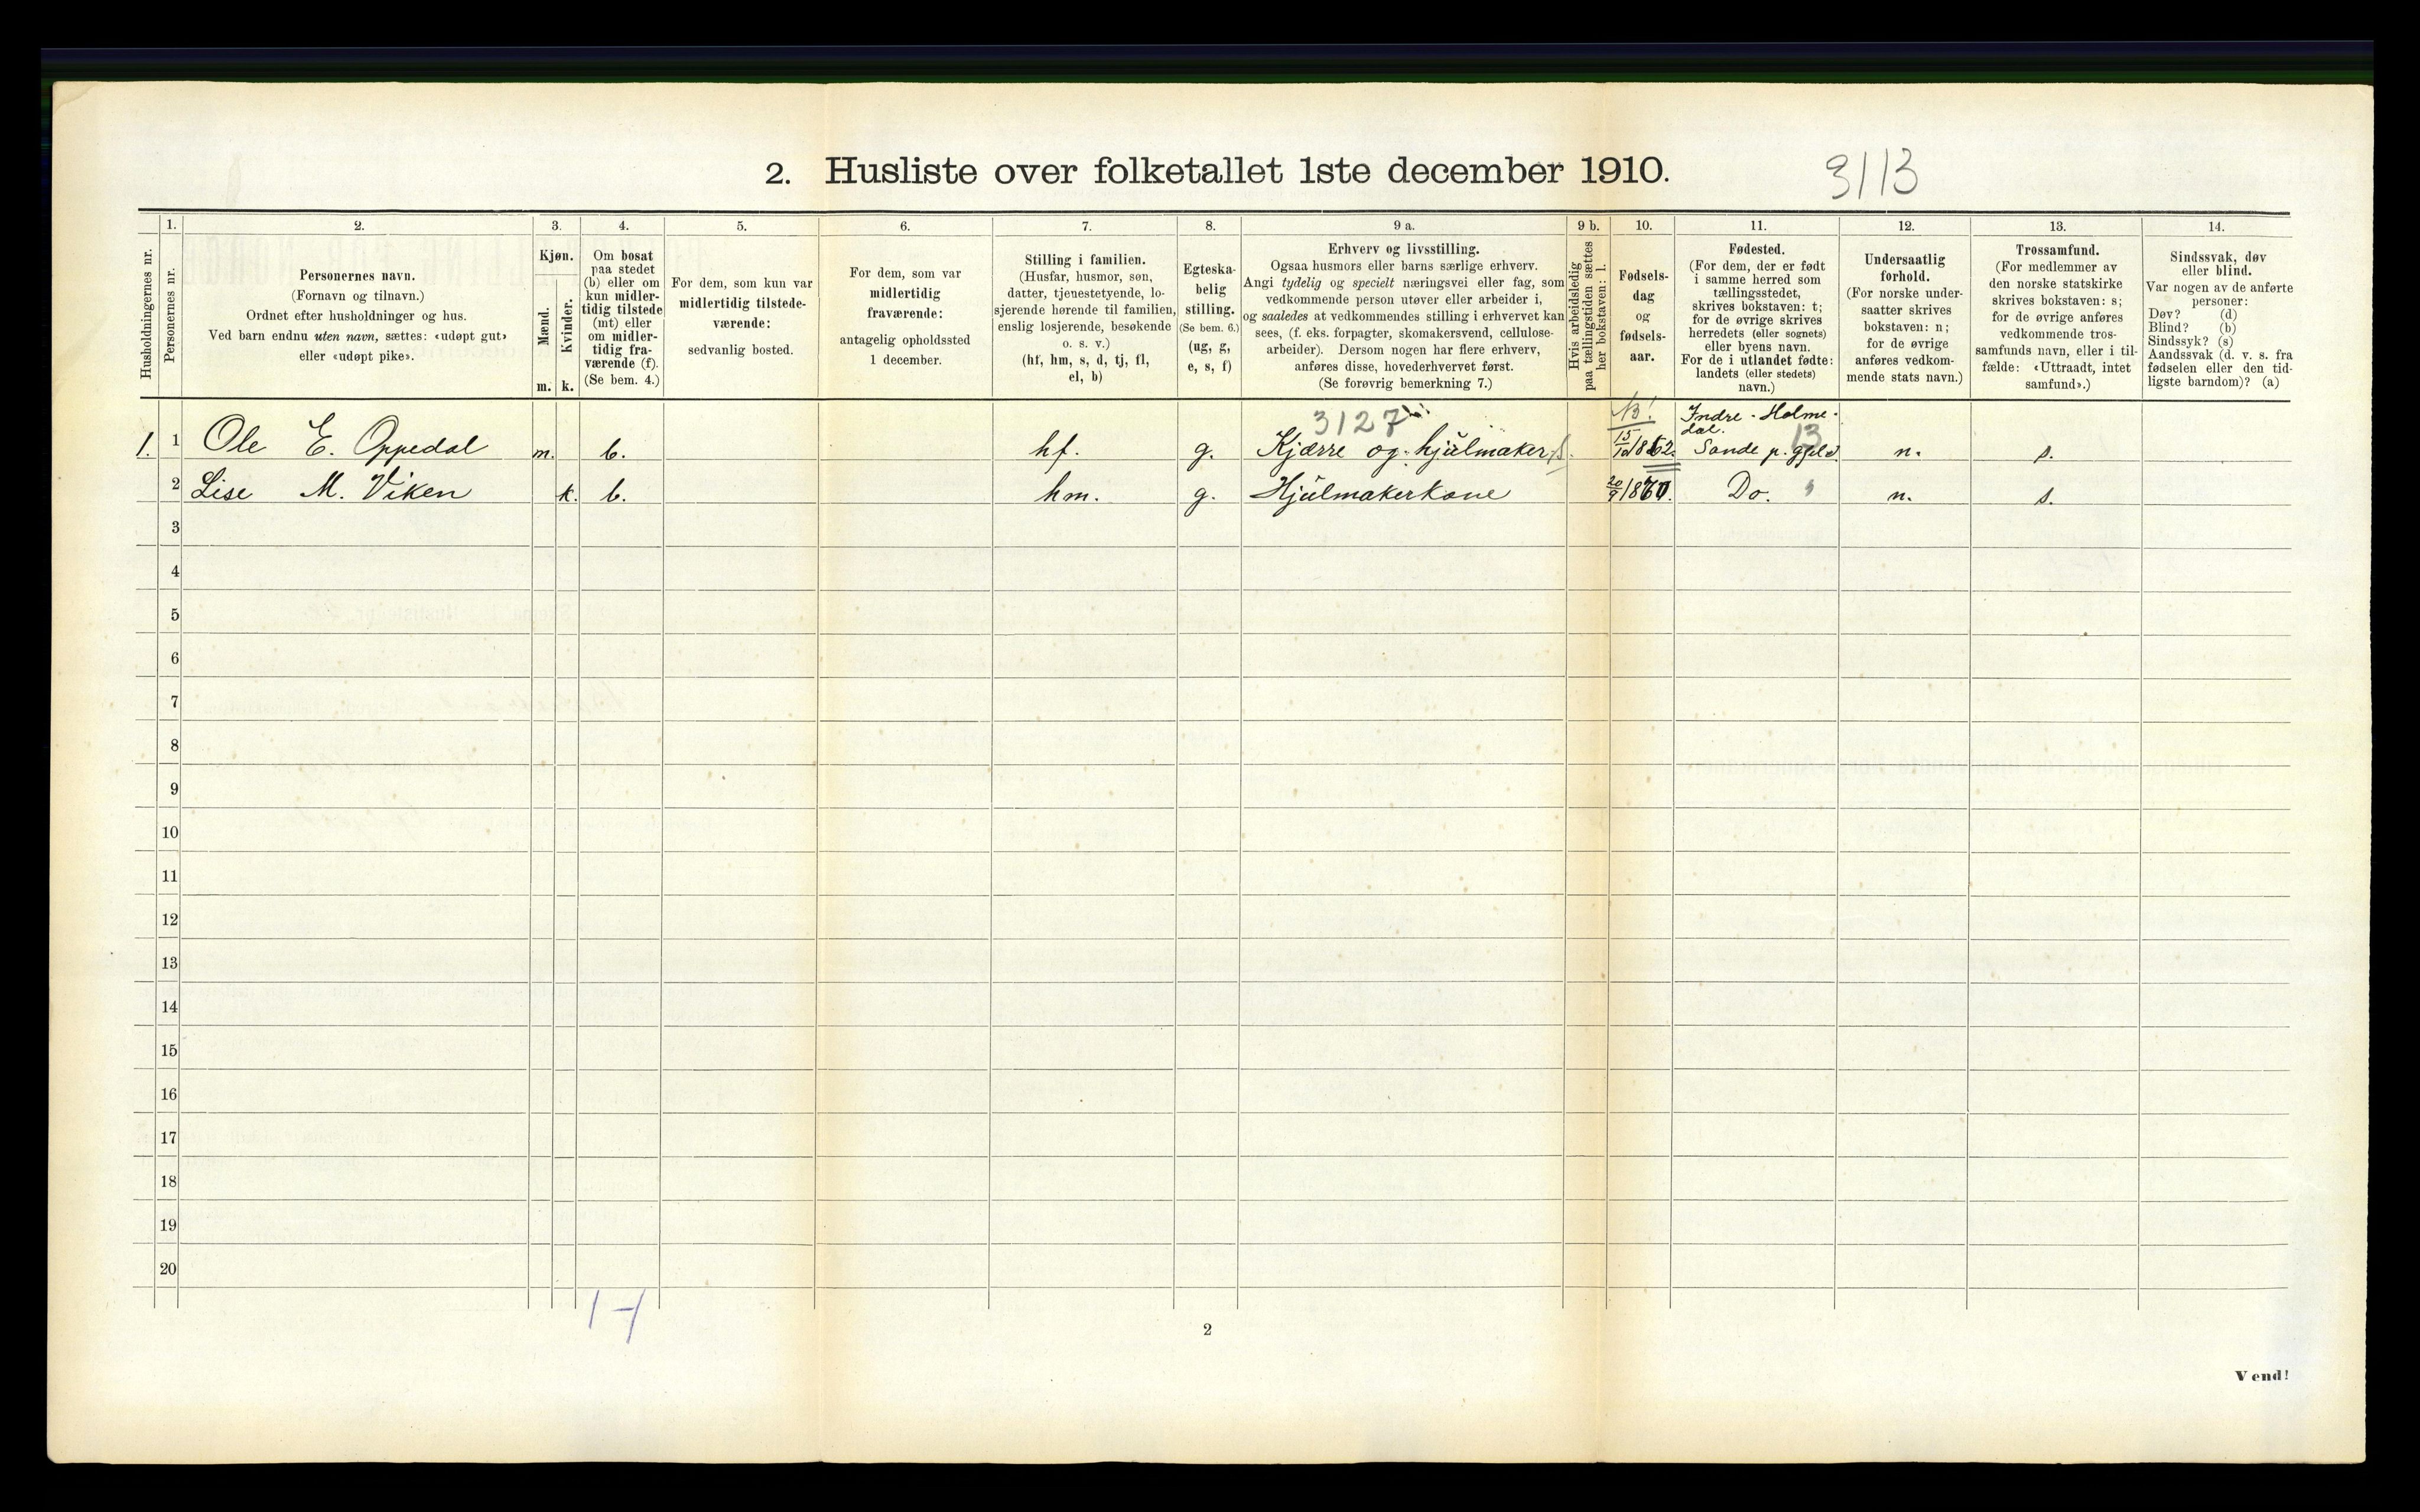 2. Husliste over folketallet 1ste december 1910.
3113
Husholdningernes nr.
1.
Personernes nr.
2.
Personernes navn.
(Fornavn og tilnavn.)
Ordnet efter husholdninger og hus.
Ved barn endnu uten navn, sættes: «udøpt gut»
eller «udøpt pike».
3.
Kjøn.
Mænd.
Kvinder.
m. k.
4.
Om bosat
paa stedet
(b) eller om
kun midler-
tidig tilstede
(mt) eller
om midler-
tidig fra-
værende (f).
(Se bem. 4.)
5.
For dem, som kun var
midlertidig tilstede-
værende:
sedvanlig bosted.
6.
For dem, som var
midlertidig
fraværende:
antagelig opholdssted
1 december.
7.
Stilling i familien.
(Husfar, husmor, søn,
datter, tjenestetyende, lo-
sjerende hørende til familien,
enslig losjerende, besøkende
o. s. v.)
(hf, hm, s, d, tj, fl,
el, b)
8.
Egteska-
belig
stilling.
(Se bem. 6.)
(ug, g,
e, s, f)
9 a.
Erhverv og livsstilling.
Ogsaa husmors eller barns særlige erhverv.
Angi tydelig og specielt næringsvei eller fag, som
vedkommende person utøver eller arbeider i,
og saaledes at vedkommendes stilling i erhvervet kan
sees, (f. eks. forpagter, skomakersvend, cellulose-
arbeider). Dersom nogen har flere erhverv,
anføres disse, hovederhvervet først.
(Se forøvrig bemerkning 7.)
9 b.
Hvis arbeidsledig
paa tællingstiden sættes
her bokstaven: l.
10.
Fødsels-
dag
og
fødsels-
aar.
11.
Fødested.
(For dem, der er født
i samme herred som
tællingsstedet,
skrives bokstaven: t;
for de øvrige skrives
herredets (eller sognets)
eller byens navn.
For de i utlandet fødte:
landets (eller stedets)
navn.)
12.
Undersaatlig
forhold.
(For norske under-
saatter skrives
bokstaven: n;
for de øvrige
anføres vedkom-
mende stats navn.)
13.
Trossamfund.
(For medlemmer av
den norske statskirke
skrives bokstaven: s;
for de øvrige anføres
vedkommende tros-
samfunds navn, eller i til-
fælde: «Uttraadt, intet
samfund».)
14.
Sindssvak, døv
eller blind.
Var nogen av de anførte
personer:
Døv? (d)
Blind? (b)
Sindssyk? (s)
Aandssvak (d. v. s. fra
fødselen eller den tid-
ligste barndom)? (a)
3127 Indre-Holme-
dal. 13
1. 1 Ole E. Oppedal m. b. hf. g. Kjærre og hjulmaker 1862 Sande p. gjeld. n. s.
2 Lise M. Viken k. b. hm. g. Hjulmakerkone 20/9 Do. n. s.
3
4
5
6
7
8
9
10
11
12
13
14
15
16
17
18
19
20
1-1
2
Vend!